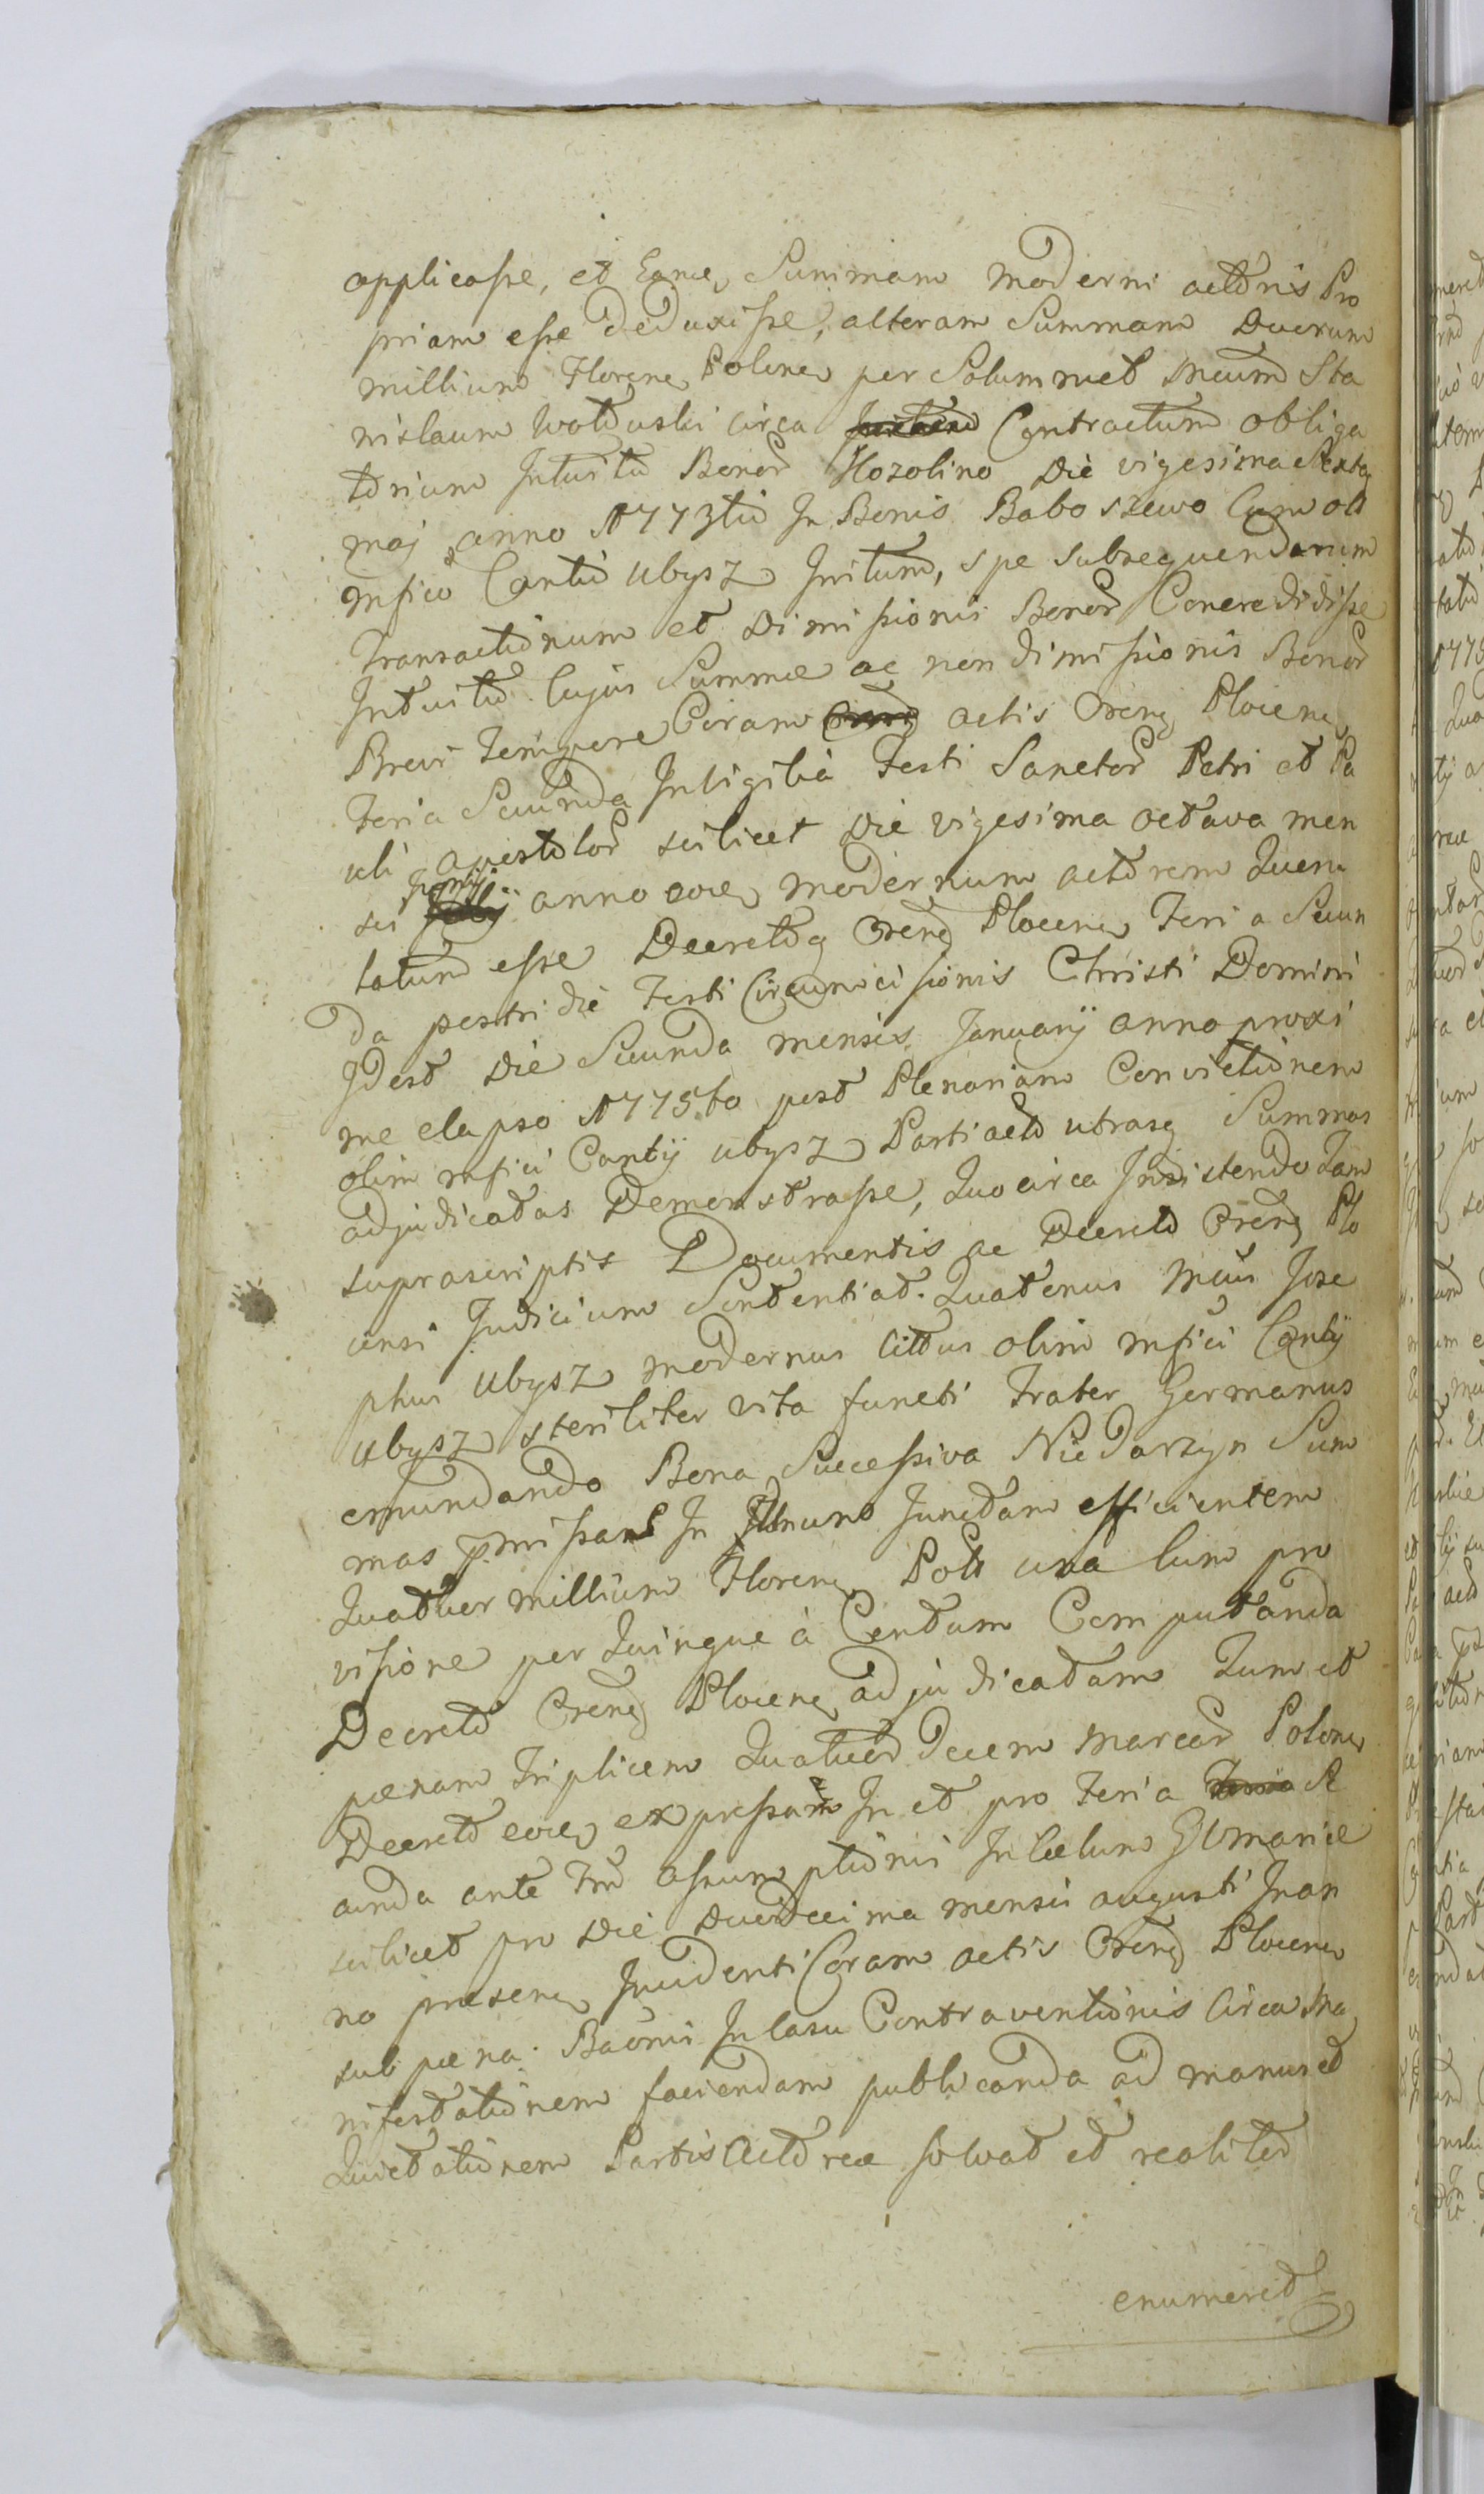 applicasse, et Eamq Summam moderni actoris Pro
priam esse deduxisse, alteram Summam Duorum
millium Floren Polon per Solummet Mcum Sta
nislaum Wołowski circa Contractum obliga
torium Intuitu Bonor Kozolino Die vigesima Sexta
maj anno 1773tio In Bonis Baboszewo Cum oli
mfico Cantio Ubysz Initum, spe subsequendarum
Transactionum et Dimissionis Bonor Concredidisse
Intuitu Cujus Summæ ac non dimissionis Bonor
Brevi Tempore Coram actis Cren Plocen
Feria Secunda In Vigilia Festi Sanctor Petri et Pa
uli apostolor scilicet Die vigesima octava men
sis Junij anno eoe modernum actorem Quem
latum esse Decretoq Cren Plocen Feria Secun
da postridie Festi Circumcisionis Christi Domini
Idest Die Secunda mensis Januarij anno proxi
me elapso 1775to post Plenariam Convictionem
olim mfici Cantij Ubysz Parti acto utrasq Summas
adjudicatas Demonstrasse, Quocirca Insistendo Tam
suprascriptis Documentis ac Decreto Cren Plo
censi Judicium Sententiat. Quatenus Mcus Jose
phus Ubysz modernus Cittus olim mfici Cantij
Ubysz steriliter vita functi Frater Germanus
emundando Bona Successiva Niedarzyn Sum
mas pmissas In Unum Junctam efficientem
Quatuor millium Floren Pol una Cum pro
visione per Quinque à Centum Computanda
Decreto Cren Plocen adjudicatam Tum et
pœnam Triplicem Quatuordecem marcar Polon
Decreto eoe expressam In et pro Feria Se
cunda ante Ftum assumptionis In Cælum Mariæ
scilicet pro Die Duodecima mensis augusti In an
no præsen Incidenti Coram actis Cren Plocen
sub pœna Baonis In Casu Contraventionis Circa Ma
nifestationem faciendam publicanda ad manus et
Quietationem Partis Actoreæ solvat et realiter
enumeret